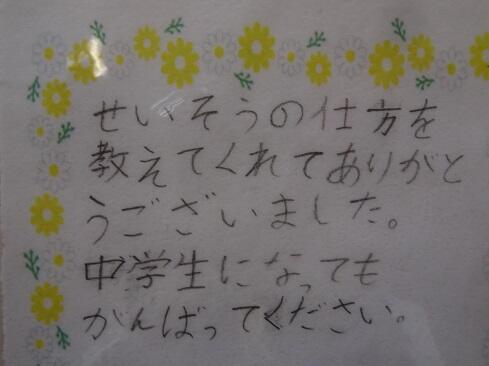 せいそうの仕方を
教えてくれてありがと
うございました。
中学生になっても
がんばってください。